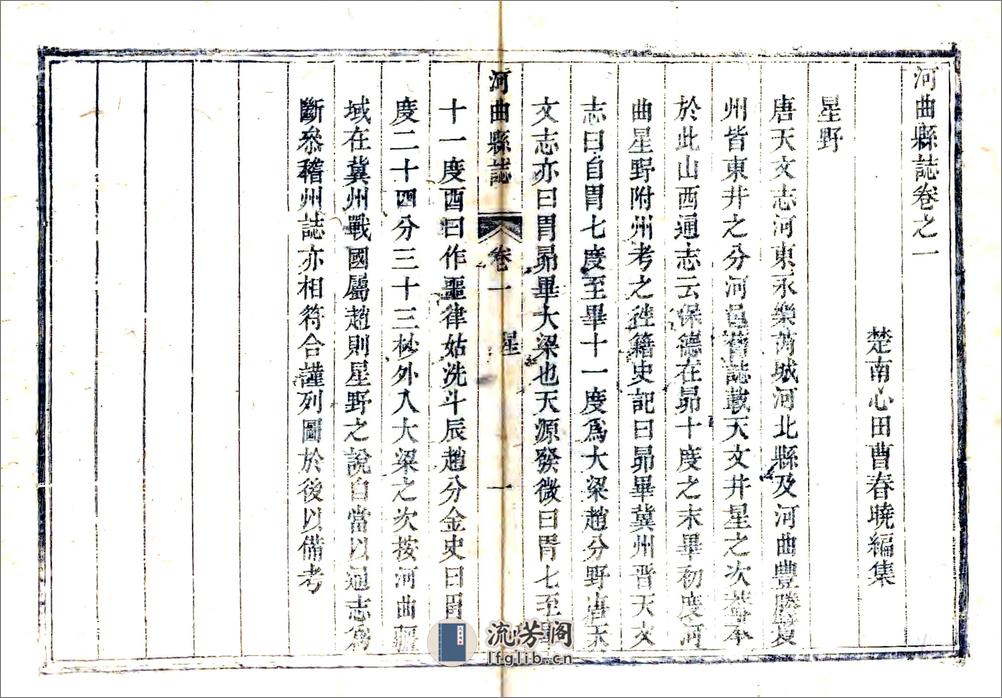 河曲縣誌卷之一
楚南心田曹春曉編集
星野
唐天文志河東永樂芮城河北縣及河曲豐勝夏
州皆東井之分河邑舊誌載天文井星之次蓋本
於此山西通志云保德在昴十度之末畢初度河
曲星野附州考之往籍史記曰昴畢冀州晉天文
志曰自胃七度至畢十一度爲大梁趙分野唐天
文志亦曰胃昴畢大梁也天源發微曰胃七至畢
河曲縣誌 卷一 星 一
十一度酉曰作噩律姑洗斗辰趙分金史曰胃
度二十四分三十三秒外入大梁之次按河曲疆
域在冀州戰國屬趙則星野之說自當以通志爲
斷叅稽州誌亦相符合謹列圖於後以備考
流芳阁
lfglib.cn